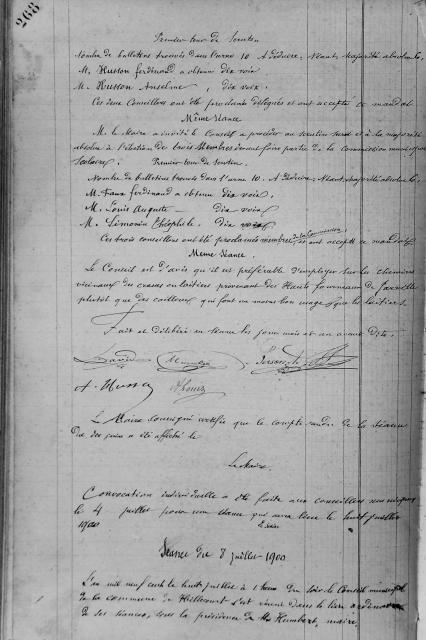 268
Premier tour de scrutin
Nombre de bulletins trouvés dans l'urne 10. A déduire, Néant, Majorité absolue 6.
M. Husson ferdinand a obtenu dix voix
M. Husson Anselme, dix voix.
Ces deux Conseillers ont été proclamés délégués et ont accepté ce mandat
Même séance
M. le Maire a invité le Conseil à procéder au scrutin secret et à la majorité
absolue à l'élection de trois Membres devant faire partie de la Commission municipale
scolaire. Premier tour de scrutin.
Nombre de bulletins trouvés dans l'urne 10. A déduire, Néant, Majorité absolue 6.
M. ferdinand a obtenu dix voix.
M. Louis Auguste — dix voix
M. Simonin Théophile. dix voix
Ces trois conseillers ont été proclamés membres de la Commission et ont accepté ce mandat
Même séance.
Le Conseil est d'avis qu'il est préférable d'employer sur les chemins
vicinaux des crasses ou laitiers provenant des Hauts fourneaux de
plutôt que des cailloux qui font un moins bon usage que les laitiers.
Fait et délibéré en séance les jour, mois et an avant dits.
Le Maire soussigné certifie que le compte rendu de la séance
du dix juin a été affiché le
Le Maire.
Convocation individuelle a été faite aux conseillers municipaux
le 4 juillet pour une séance qui aura lieu le huit juillet
1900
Séance du 8 juillet 1900
L'an mil neuf cent le huit juillet à heure du soir le Conseil municipal
de la commune de s'est réuni dans le lieu ordinaire
de ses séances, sous la présidence de M. Humbert, maire